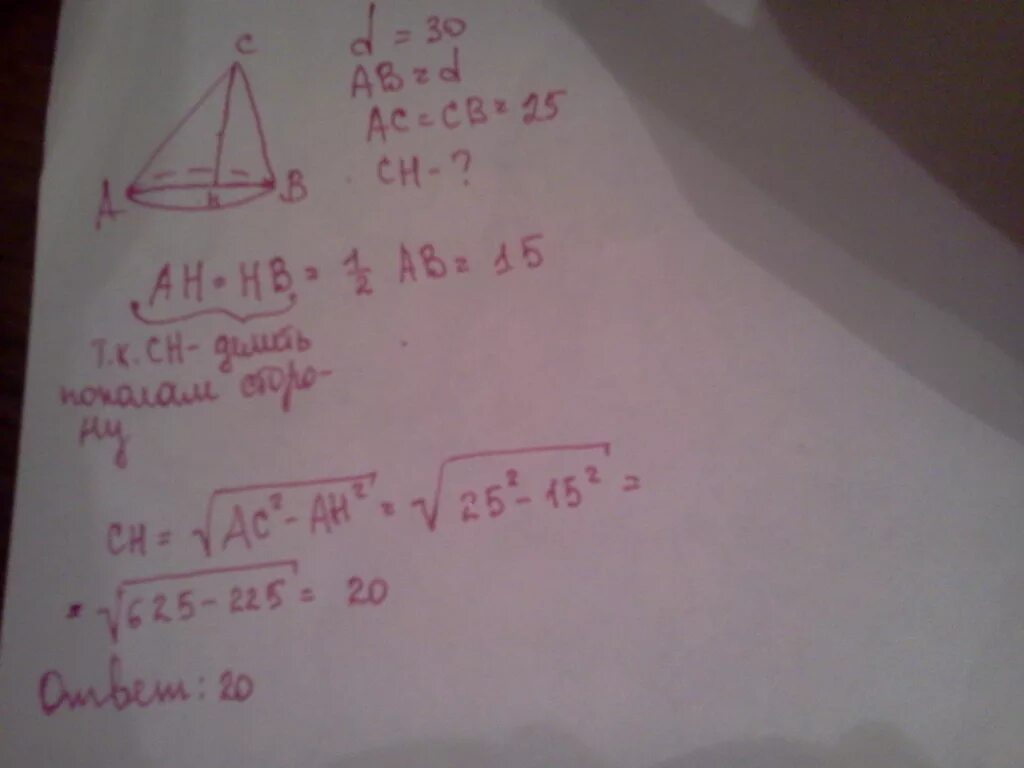 C
A
B
h
d = 30
AB = d
AC = CB = 25
CH - ?
AH = HB = 1/2 AB = 15
т.к. CH - делить
пополам сторо-
ну
CH = √AC² - AH² = √25² - 15² =
= √625 - 225 = 20
Ответ: 20